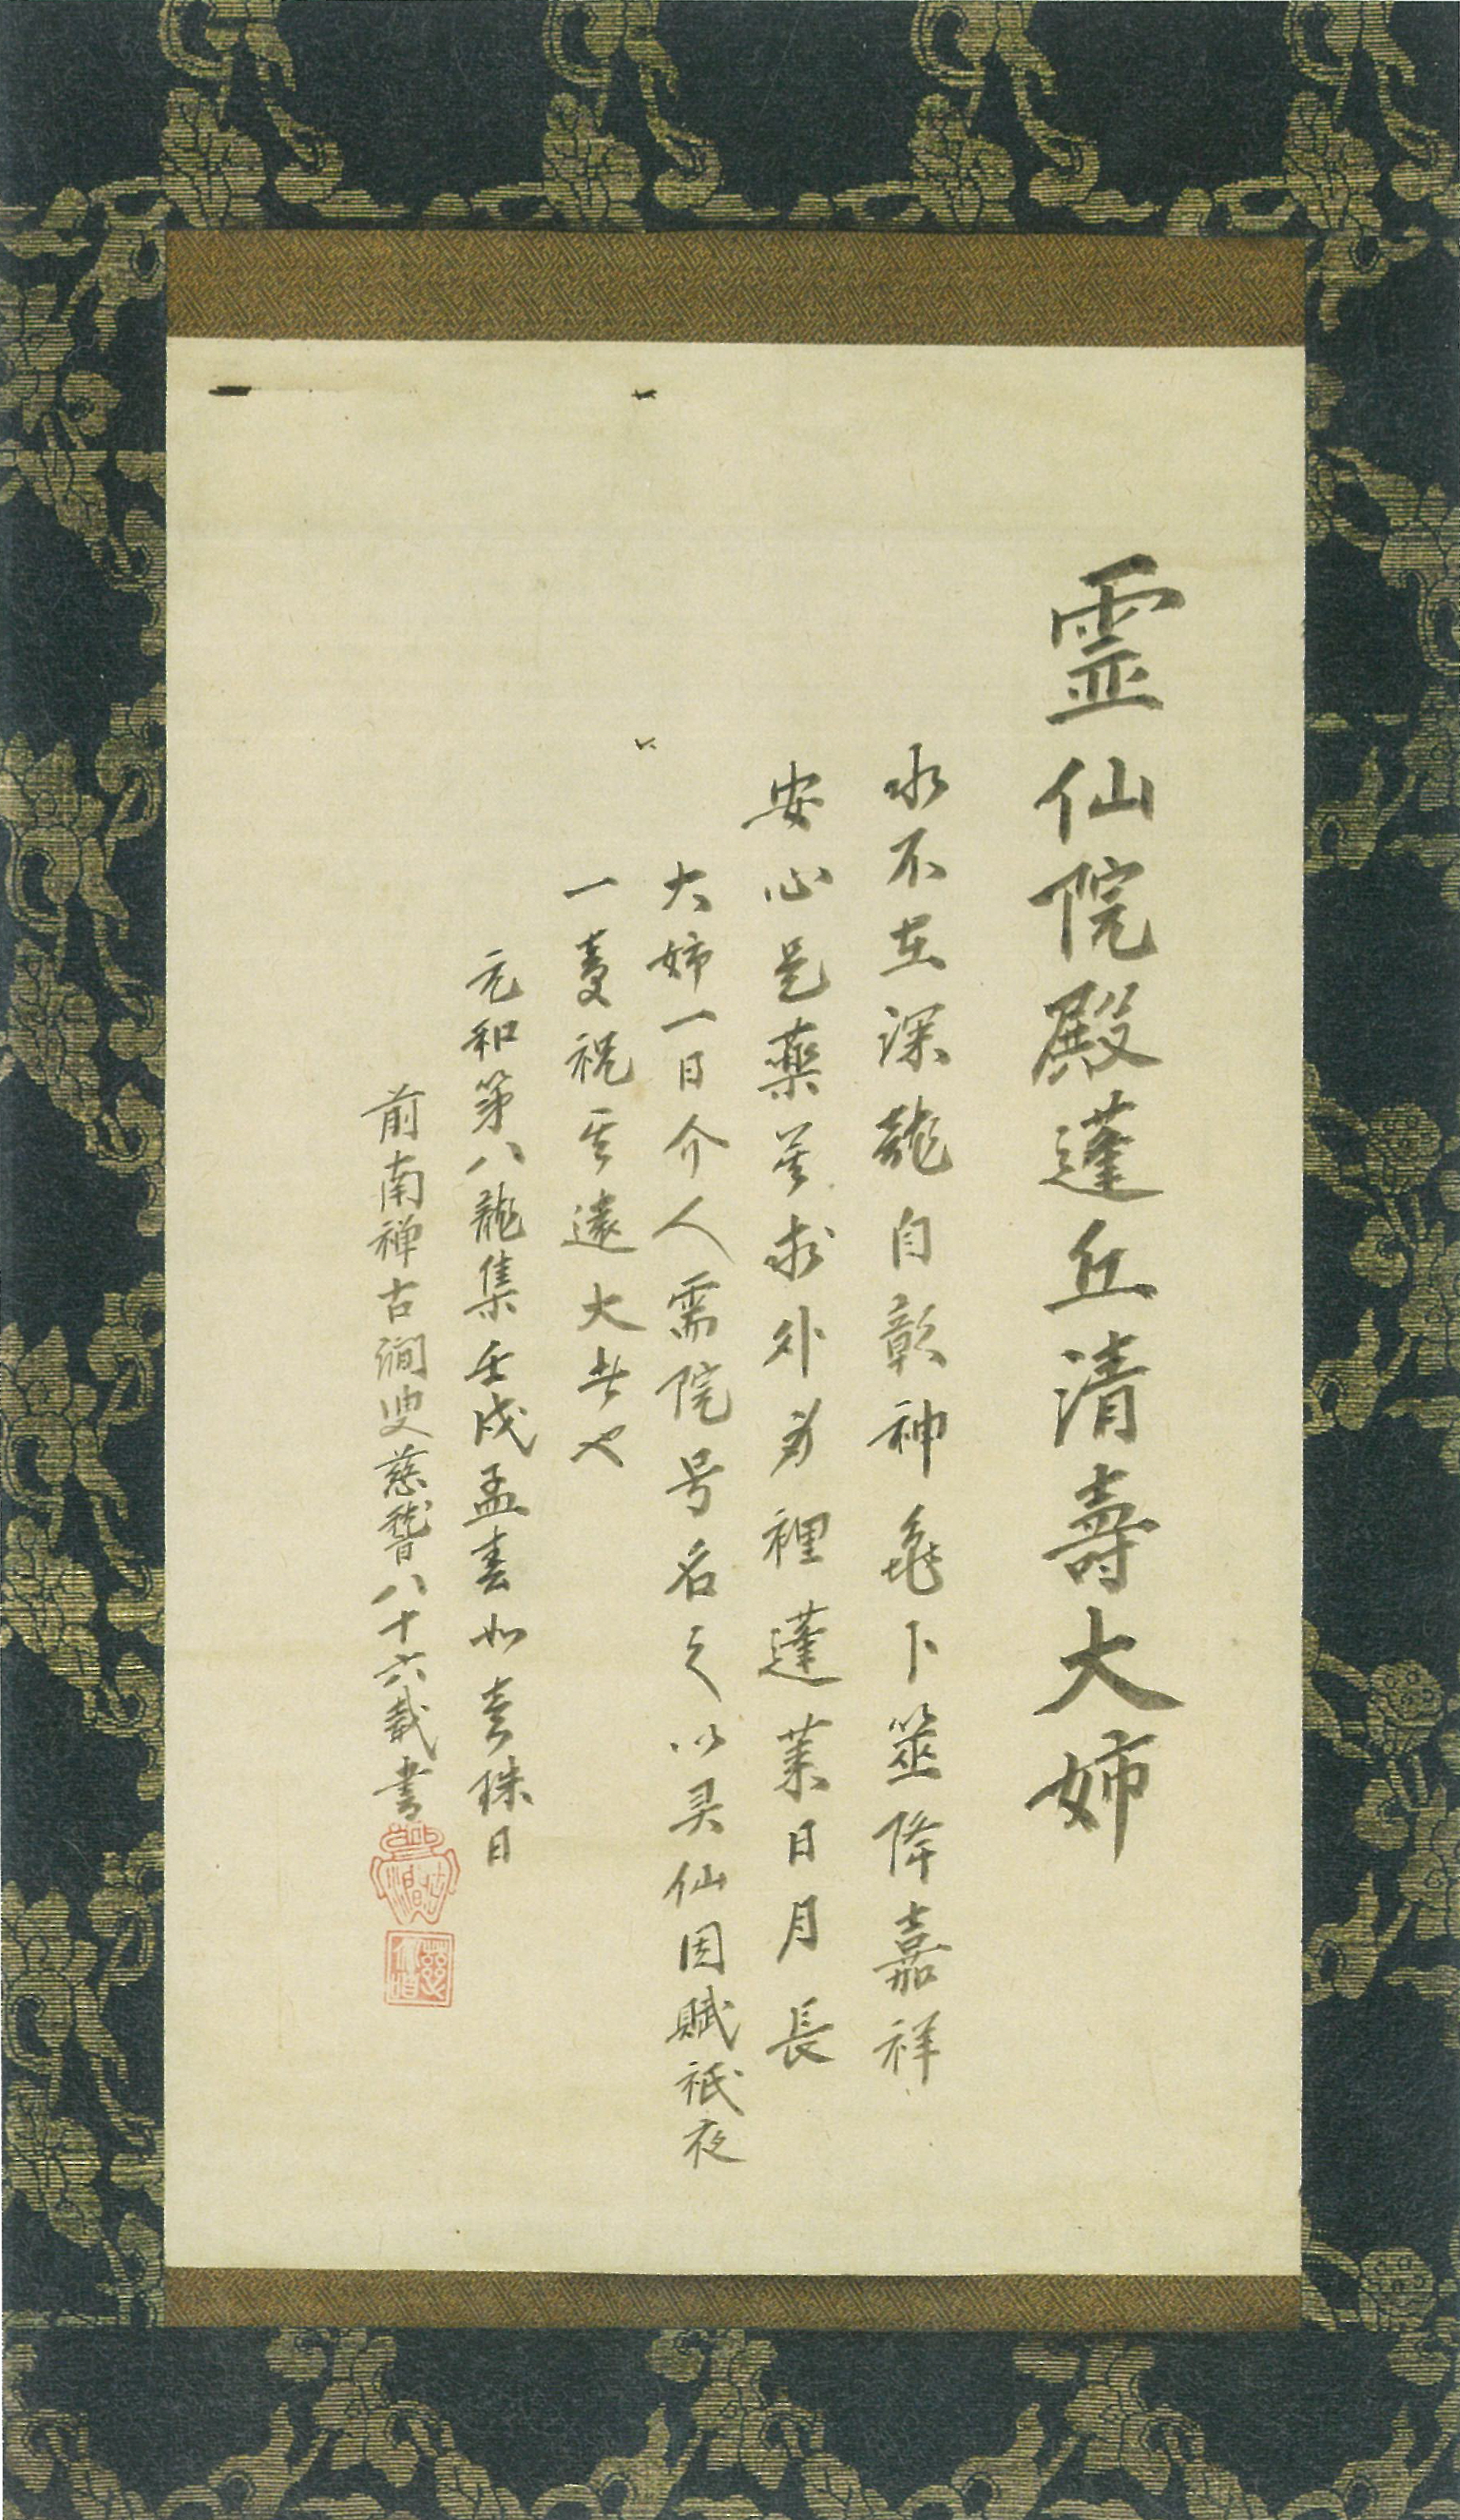 霊仙院殿蓬丘清壽大姉
水不在深龍自彰神亀卜筮降嘉祥
安心是藥求外身裡蓬莱日月長
大姉一日介人需院号名之以灵仙因賦祇夜
一祝其遠大者也
元和第八龍集壬戌孟春如意珠日
前南禅古澗叟慈稽八十六載書
古澗
慈稽